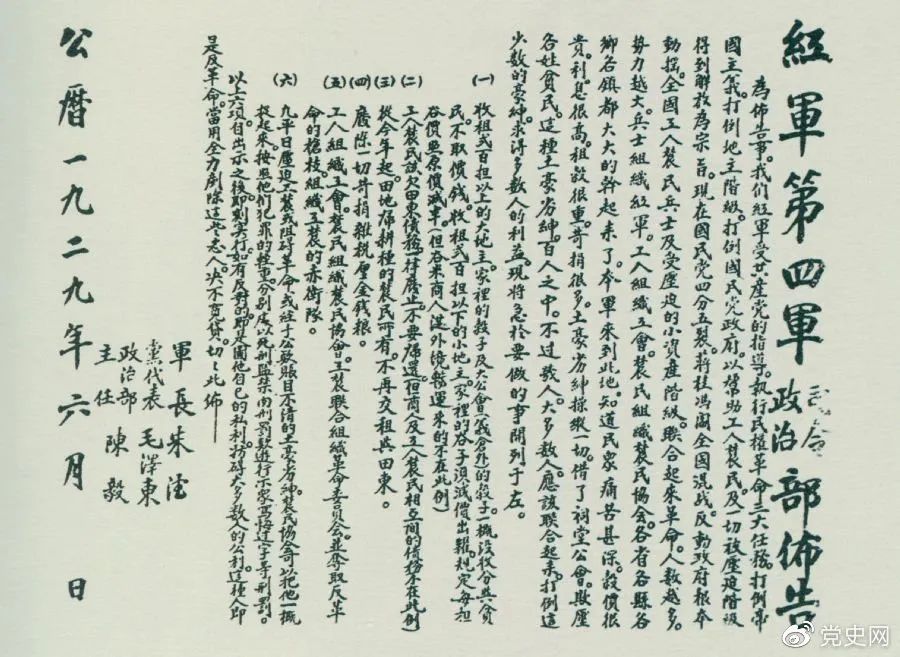 紅軍第四軍司令政治部佈告
為佈告事。我們紅軍受共產党的指導。執行民權革命三大任務。打倒帝
國主義。打倒地主階級。打倒國民党政府。以幫助工人農民及一切被壓迫階級
得到解放為宗旨。現在國民党四分五裂蔣桂馮閻全國混战。反動政府根本
動摇。全國工人農民兵士及受壓迫的小資產階級。聯合起來革命。人数越多。
势力越大。兵士組織紅軍。工人組織工會。農民組織農民協會。各省各縣各
鄉各鎮都大大的幹起来了。本軍來到此地。知道民衆痛苦甚深。穀價很
貴。利息很高。租穀很重。苛捐很多。土豪劣紳操縱一切。借了祠堂公會。欺壓
各姓貧民。這種土豪劣紳。百人之中。不过数人。大多数人。應該聯合起來。打倒這
少数的豪紳。求得多数人的利益。現將急於要做的事開列于左。
(一) 收租弍百担以上的大地主。家裡的穀子及大公會(義倉外)的穀子。一概没收分與贫
民。不取價钱。收租弍百担以下的小地主。家裡的谷子須減價出糶。規定每担
谷價照原價減半。(但谷米商人從外境辦運来的不在此例)
(二) 工人農民該欠田東債務一律廢止。不要歸還。(但商人及工人農民相互間的債務不在此例)
(三) 從今年起。田地歸耕種的農民所有。不再交租與田東。
(四) 廢除一切苛捐雜税厘金錢粮。
(五) 工人組織工會。農民組織農民協會。工農聯合組織革命委員会。並奪取反革
命的槍枝組織工農的赤衛隊。
(六) 凡平日壓迫工農或阻碍革命。或经手公款賬目不清的土豪劣紳。農民協會可以把他一概
捉起來。按照他們犯罪的輕重。分别處以死刑監禁肉刑罰款遊行示衆寫悔过字等刑罰。
以上六項自出示之後。即刻实行。如有反對的。即是圖他自己的私利。妨碍大多数人的公利。這種人即
是反革命。當用全力剷除這些惡人。决不寬貸。切切此佈
軍長 朱德
黨代表 毛澤東
政治部主任 陳毅
公曆一九二九年六月 日
党史网